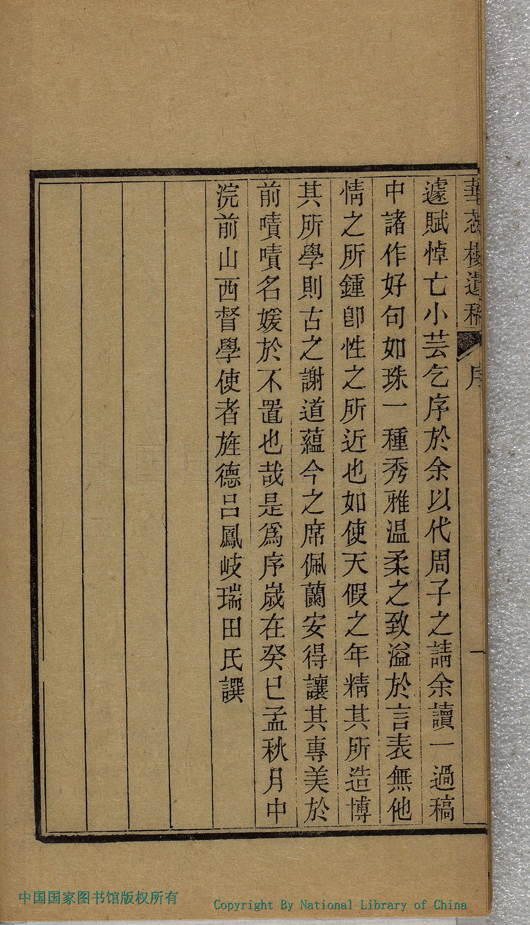 華蕊樓遺稿 序 一
遽賦悼亡小芸乞序於余以代周子之請余讀一過稿
中諸作好句如珠一種秀雅温柔之致溢於言表無他
情之所鍾卽性之所近也如使天假之年精其所造博
其所學則古之謝道蘊今之席佩蘭安得讓其專美於
前嘖嘖名媛於不置也哉是爲序歲在癸巳孟秋月中
浣前山西督學使者旌德吕鳳岐瑞田氏譔
中国国家图书馆版权所有
Copyright By National Library of China